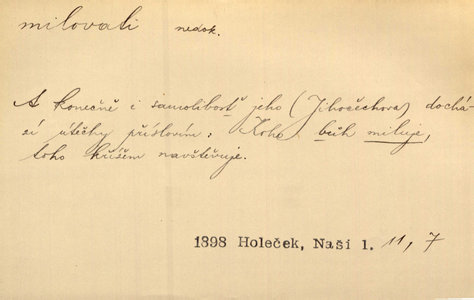 milovati nedok.
A konečně i samolibosť jeho (Jihočechova) dochá-
zí útěchy příslovím: Koho bůh miluje,
toho křížem navštěvuje.
1898 Holeček, Naši 1. 11, 7